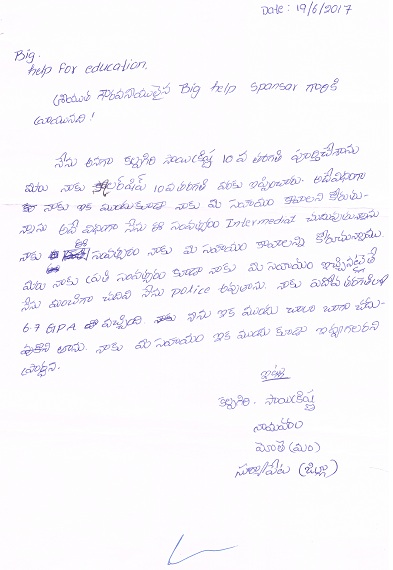 Date: 19/6/2017
Big.
help For education.
గౌరవనీయులైన Big help sponsar గారికి
వ్రాయునది!
నేను అనగా సాయికృష్ణ 10 వ తరగతి పూర్తిచేశాను
మీరు నాకు 10 వ తరగతి వరకు ఇచ్చినారు. అదేవిధంగా
నాకు ఇక ముందుకూడా నాకు మీ సహాయం కావాలని కోరుతు-
న్నాను అదే విధంగా నేను ఈ సంవత్సరం Intermediat చదువుతున్నాను
నాకు ఈ సంవత్సరం నాకు మీ సహాయం కావాలన్ని కోరుచున్నాను.
మీరు నాకు ప్రతి సంవత్సరం కూడా నాకు మీ సహాయం ఇచ్చినట్లైతే
నేను మంచిగా చదివి నేను police అవుతాను. నాకు పదోవ తరగతిలో
6.7 GPA వచ్చింది. నేను ఇక ముందు చాలా బాగా చదు-
నాకు మీ సహాయం ఇక ముందు కూడా ఇవ్వగలరని
ప్రార్థన.
ఇట్లు
సాయికృష్ణ
మోతె (మం)
సూర్యాపేట (జిల్లా)